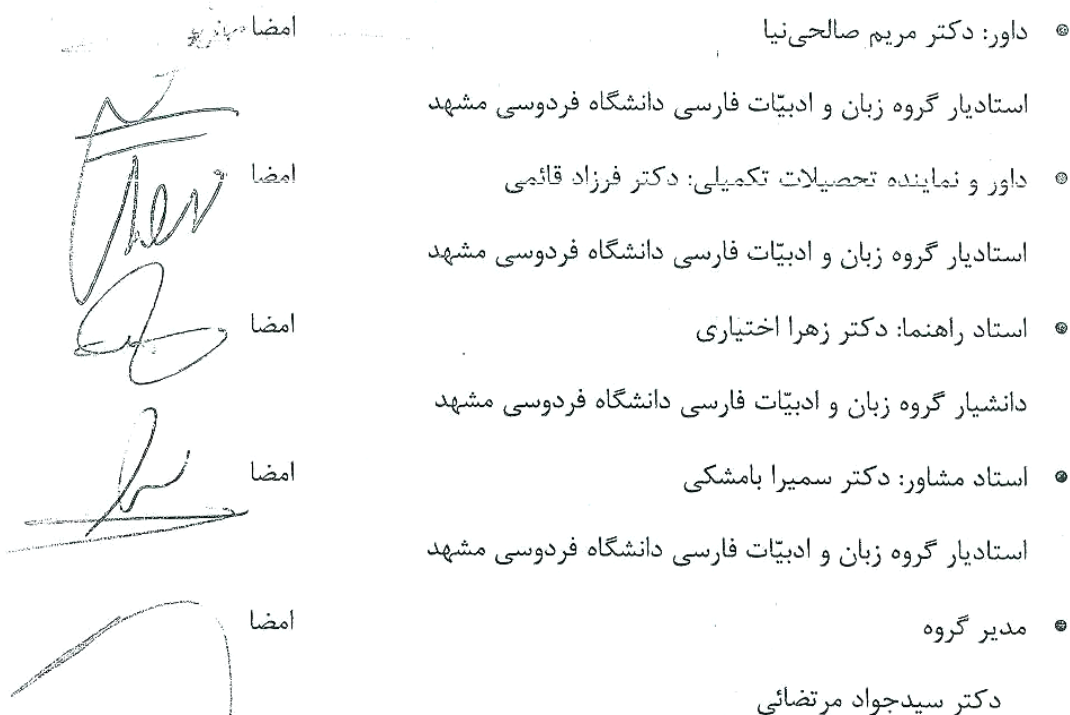 داور: دکتر مریم صالحی‌نیا امضا
استادیار گروه زبان و ادبیّات فارسی دانشگاه فردوسی مشهد
داور و نماینده تحصیلات تکمیلی: دکتر فرزاد قائمی امضا
استادیار گروه زبان و ادبیّات فارسی دانشگاه فردوسی مشهد
استاد راهنما: دکتر زهرا اختیاری امضا
دانشیار گروه زبان و ادبیّات فارسی دانشگاه فردوسی مشهد
استاد مشاور: دکتر سمیرا بامشکی امضا
استادیار گروه زبان و ادبیّات فارسی دانشگاه فردوسی مشهد
مدیر گروه امضا
دکتر سیدجواد مرتضائی